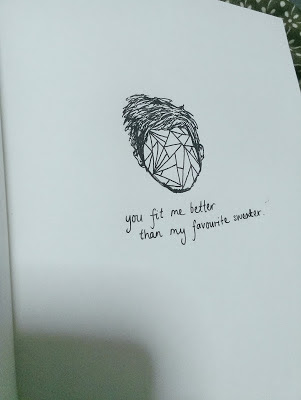 you fit me better
than my favourite sweater.